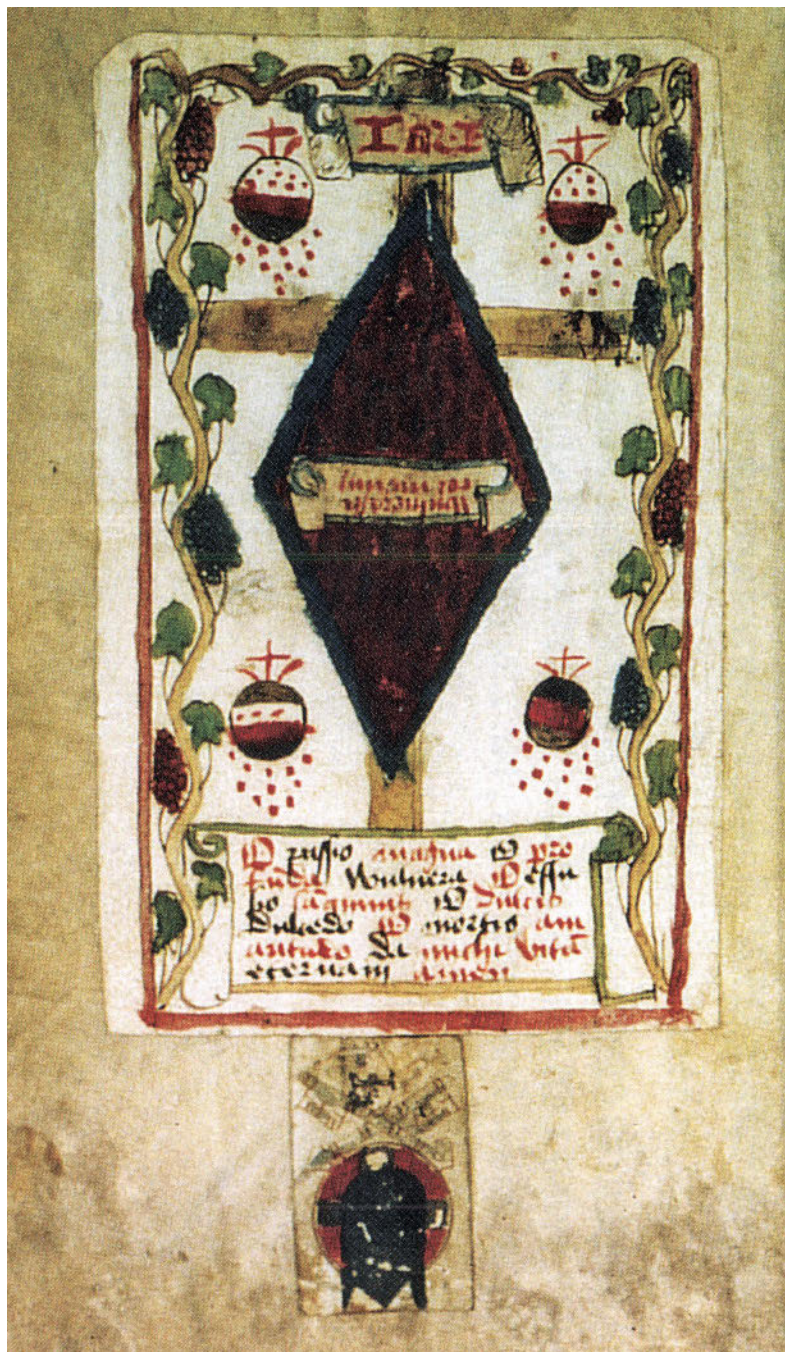 INRI
O passio magna O pro
funda Wulnera O effu
sio sāguinis O dulcis
dulcedo O mortis am
aritudo da michi vitā
eternam amen